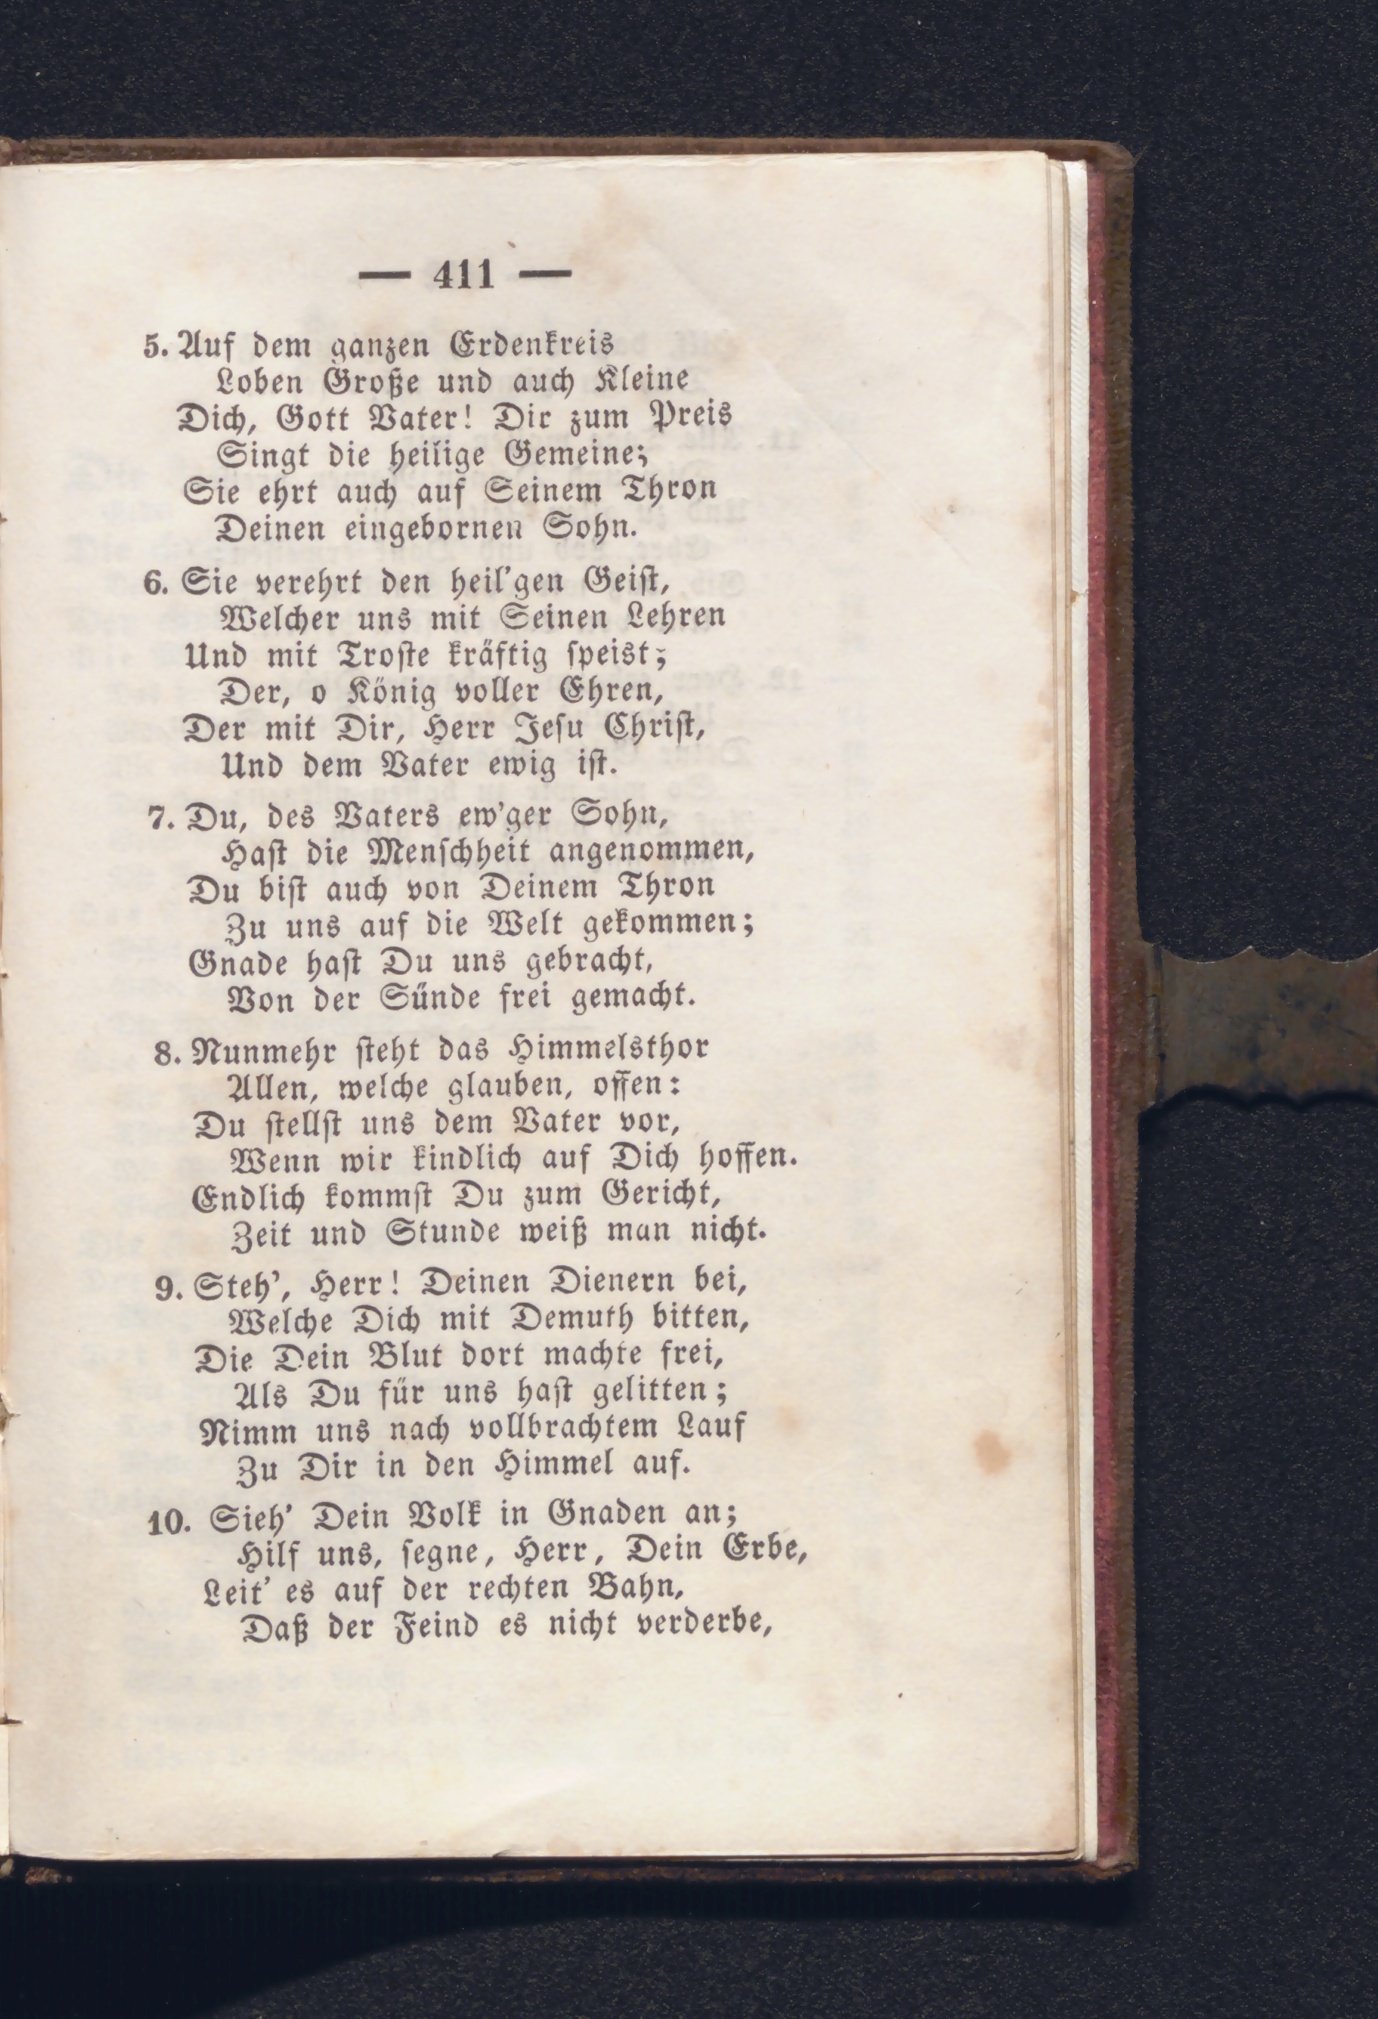 — 411 —
5. Auf dem ganzen Erdenkreis
Loben Große und auch Kleine
Dich, Gott Vater! Dir zum Preis
Singt die heilige Gemeine;
Sie ehrt auch auf Seinem Thron
Deinen eingebornen Sohn.
6. Sie verehrt den heil'gen Geiſt,
Welcher uns mit Seinen Lehren
Und mit Troſte kräftig ſpeist;
Der, o König voller Ehren,
Der mit Dir, Herr Jeſu Chriſt,
Und dem Vater ewig iſt.
7. Du, des Vaters ew'ger Sohn,
Haſt die Menſchheit angenommen,
Du biſt auch von Deinem Thron
Zu uns auf die Welt gekommen;
Gnade haſt Du uns gebracht,
Von der Sünde frei gemacht.
8. Nunmehr ſteht das Himmelsthor
Allen, welche glauben, offen:
Du ſtellſt uns dem Vater vor,
Wenn wir kindlich auf Dich hoffen.
Endlich kommſt Du zum Gericht,
Zeit und Stunde weiß man nicht.
9. Steh', Herr! Deinen Dienern bei,
Welche Dich mit Demuth bitten,
Die Dein Blut dort machte frei,
Als Du für uns haſt gelitten;
Nimm uns nach vollbrachtem Lauf
Zu Dir in den Himmel auf.
10. Sieh' Dein Volk in Gnaden an;
Hilf uns, ſegne, Herr, Dein Erbe,
Leit' es auf der rechten Bahn,
Daß der Feind es nicht verderbe,